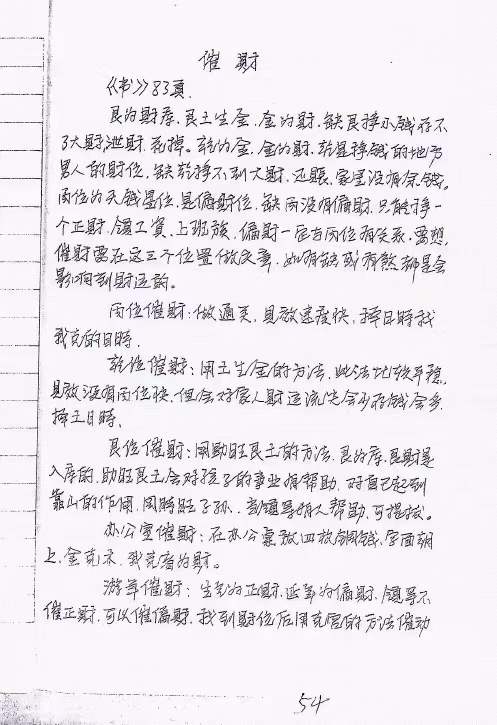 催财
《书》83页.
艮为财库.艮土生金.金为财.缺艮挣小钱存不
了大财,泄财.花掉。乾为金.金为财.乾是挣钱的地方
男人的财位.缺乾挣不到大财.还账.家里没有余钱。
丙位为天钱星位.是偏财位.缺丙没有偏财.只能挣一
个正财.领工资.上班族.偏财一定与丙位有关系.要想
催财要在这三个位置做文章.如有缺或有煞都是会
影响到财运的。
丙位催财:做通关.见效速度快.择日时我
我克的日时.
乾位催财:用土生金的方法.此法比较平稳.
见效没有丙位快.但会对家人财运流失会少存钱会多
择土日时.
艮位催财:用助旺艮土的方法.艮为库.艮财是
入库的.助旺艮土会对孩子的事业有帮助.对自己起到
靠山的作用.同时旺子孙、领导有人帮助.可提拔。
办公室催财:在办公桌放四枚铜钱.字面朝
上.金克木.我克者为财。
游年催财:生气为正财.延年为偏财.领导不
催正财.可以催偏财.找到财位后用克宫的方法催动
54